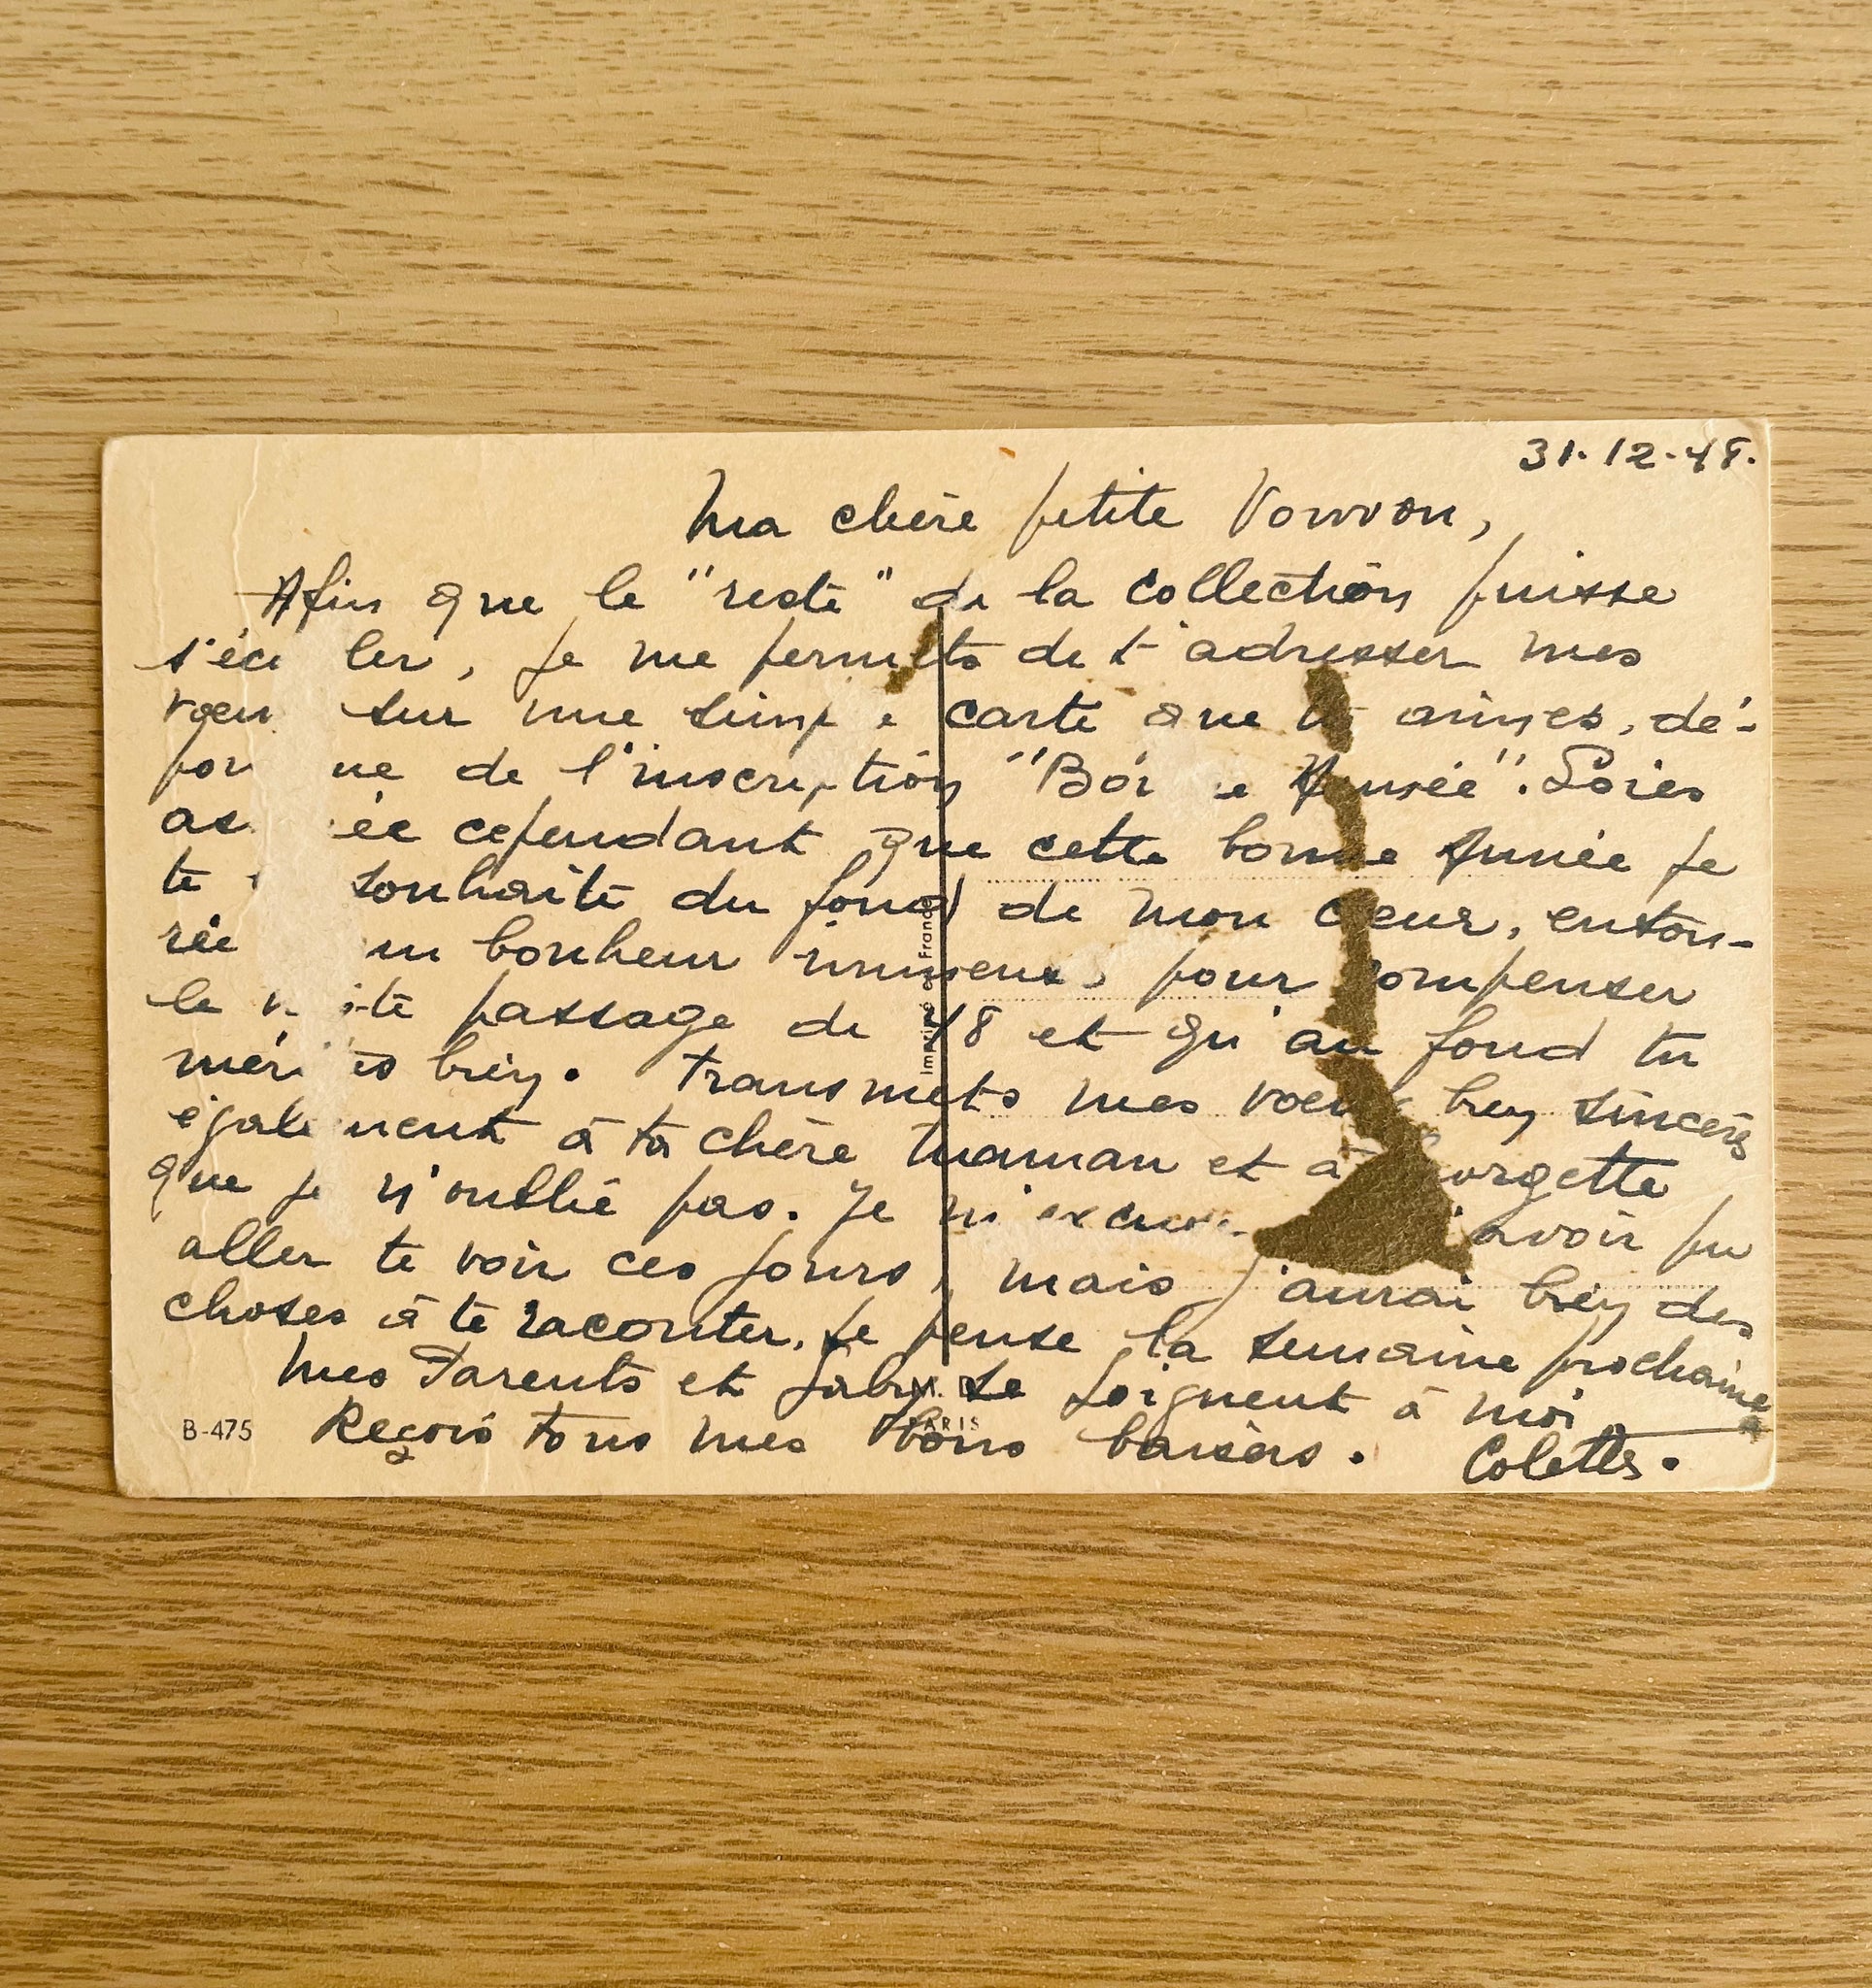 31.12.48.
Ma chère petite Vonvon,
Afin que le "reste" de la collection puisse
ler, je me permets de t'adresser mes
sur une carte que aimes, dé-
de l'inscription "Année". Sois
cependant que cette bonne Année je
te souhaite du fond de mon coeur, entou-
rée bonheur pour compenser
le passage de 48 et qu'au fond tu
bien. Transmets mes voeux bien sincères
également à ta chère Maman et à
que je n'oublie pas. Je m'excuse avoir pu
aller te voir ces jours, mais j'aurai bien des
choses à te raconter, je pense la semaine prochaine
Mes Parents et Gaby se joignent à moi
Reçois tous mes bons baisers. Colette.
B-475
Imprimé en France
PARIS